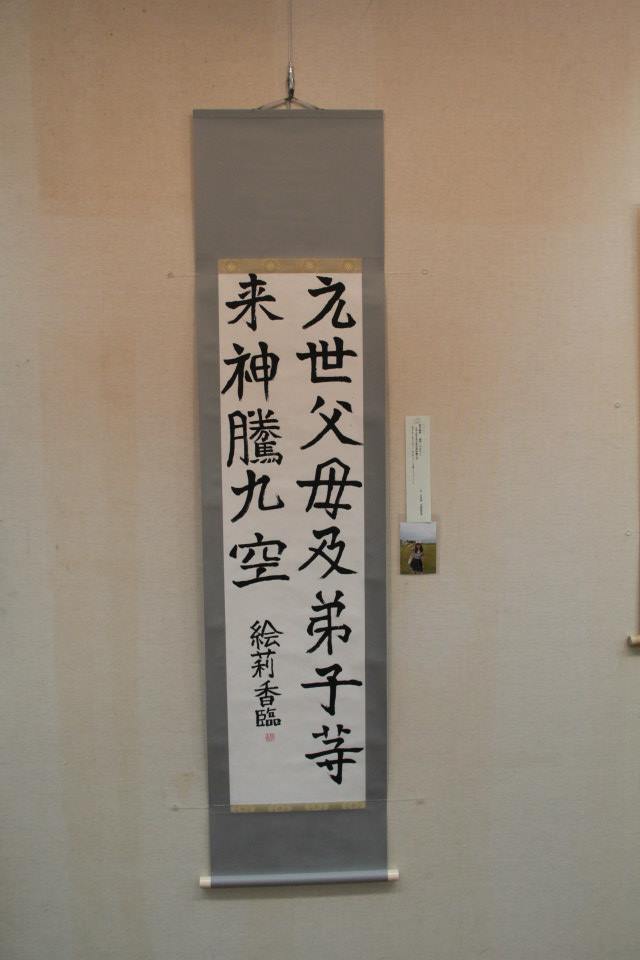 元世父母及弟子等
来神騰九空
絵莉香臨